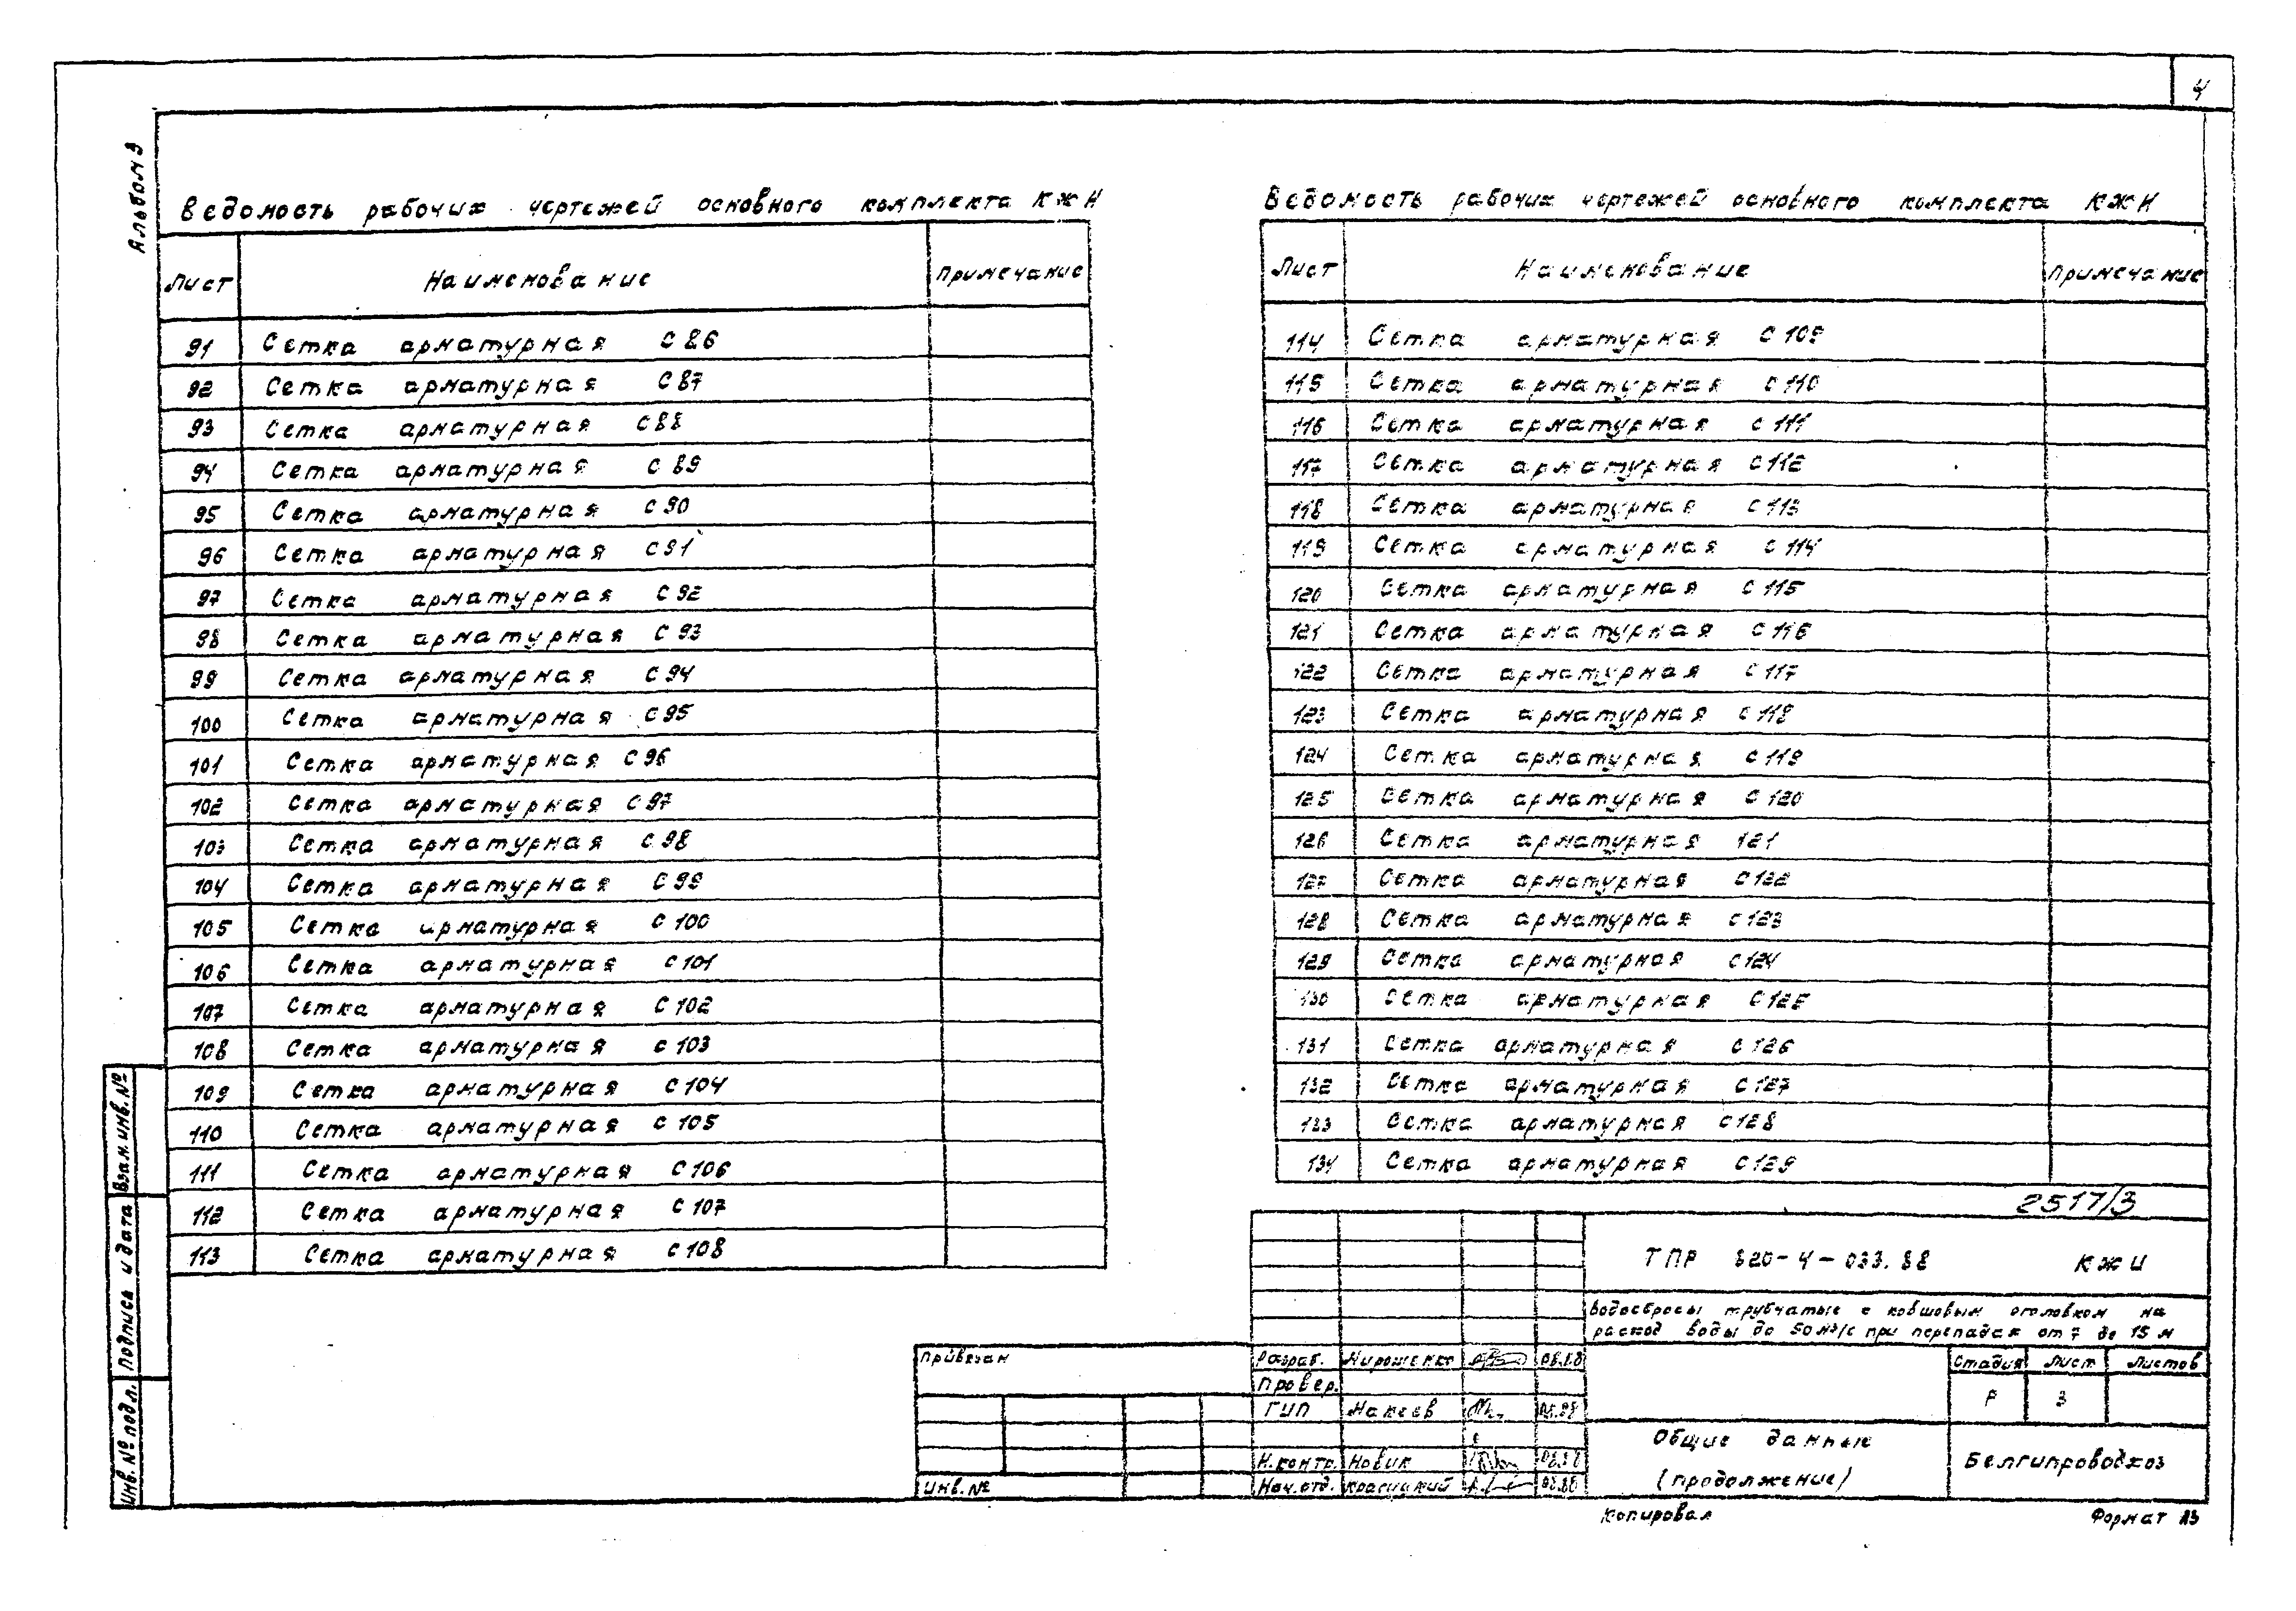 4
Альбом 3
Ведомость рабочих чертежей основного комплекта КЖИ
Лист Наименование Примечание
91 Сетка арматурная С 86
92 Сетка арматурная С 87
93 Сетка арматурная С 88
94 Сетка арматурная С 89
95 Сетка арматурная С 90
96 Сетка арматурная С 91
97 Сетка арматурная С 92
98 Сетка арматурная С 93
99 Сетка арматурная С 94
100 Сетка арматурная С 95
101 Сетка арматурная С 96
102 Сетка арматурная С 97
103 Сетка арматурная С 98
104 Сетка арматурная С 99
105 Сетка арматурная С 100
106 Сетка арматурная С 101
107 Сетка арматурная С 102
108 Сетка арматурная С 103
109 Сетка арматурная С 104
110 Сетка арматурная С 105
111 Сетка арматурная С 106
112 Сетка арматурная С 107
113 Сетка арматурная С 108
Ведомость рабочих чертежей основного комплекта КЖИ
Лист Наименование Примечание
114 Сетка арматурная С 109
115 Сетка арматурная С 110
116 Сетка арматурная С 111
117 Сетка арматурная С 112
118 Сетка арматурная С 113
119 Сетка арматурная С 114
120 Сетка арматурная С 115
121 Сетка арматурная С 116
122 Сетка арматурная С 117
123 Сетка арматурная С 118
124 Сетка арматурная С 119
125 Сетка арматурная С 120
126 Сетка арматурная 121
127 Сетка арматурная С 122
128 Сетка арматурная С 123
129 Сетка арматурная С 124
130 Сетка арматурная С 125
131 Сетка арматурная С 126
132 Сетка арматурная С 127
133 Сетка арматурная С 128
134 Сетка арматурная С 129
2517/3
ТПР 820-4-033.88 КЖИ
Водосбросы трубчатые с ковшовым оголовком на
расход воды до 50 м3/с при перепадах от 7 до 15 м
Привязан
Инв. №
Разраб. Мирошенко 08.88
Провер.
ГИП Макеев 08.88
Н.контр. Новик 08.88
Нач.отд. Красицкий 08.88
Стадия Лист Листов
Р 3
Общие данные
(продолжение)
Белгипроводхоз
Копировал
Формат А3
Взам.инв.№
Подпись и дата
Инв.№ подл.